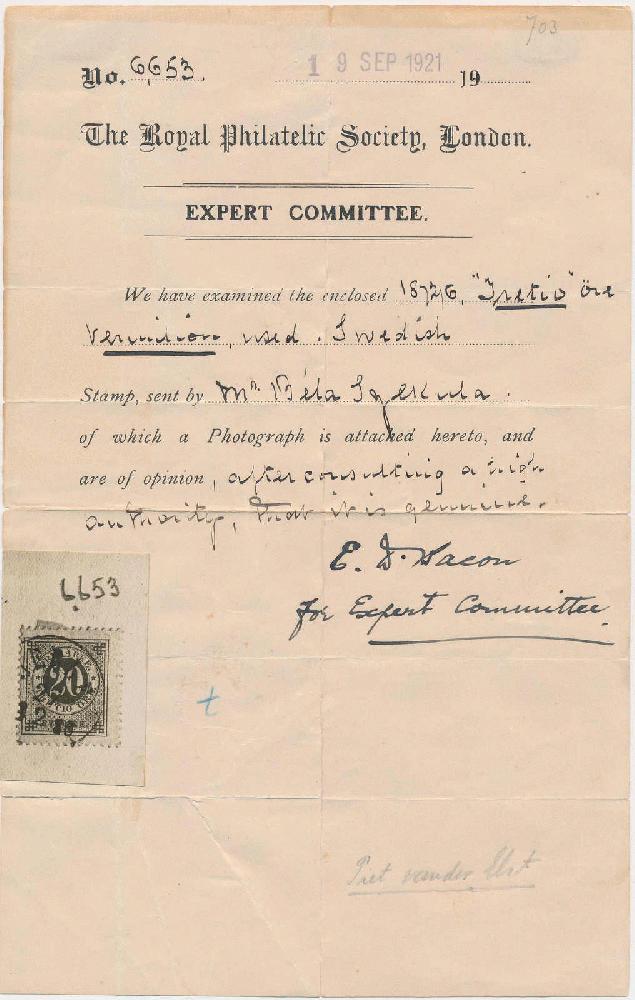 703
No. 6653. 19 SEP 1921 19
The Royal Philatelic Society, London.
EXPERT COMMITTEE.
We have examined the enclosed 1872/6, "Tretio" öre
Vermilion, used. Swedish
Stamp, sent by Mr. Béla Szekula.
of which a Photograph is attached hereto, and
are of opinion, after consulting a high
authority, that it is genuine.
E. D. Bacon
for Expert Committee
6653
20
Piet vander Elst